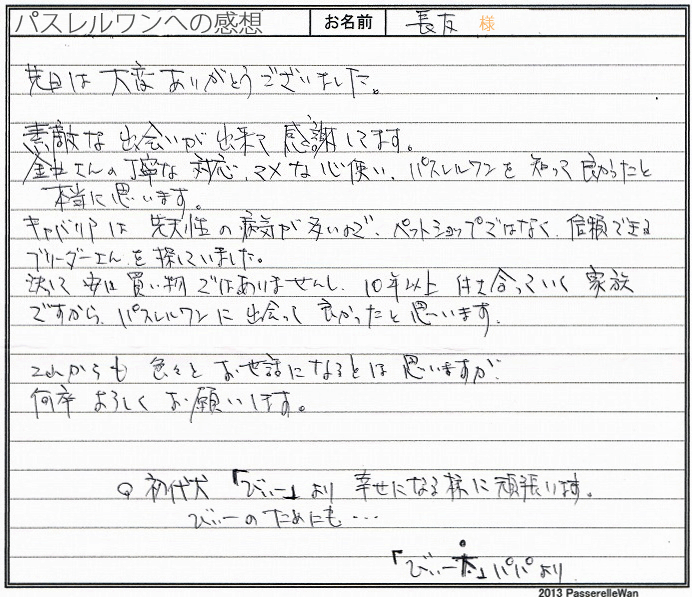 パスレルワンへの感想 お名前 長友 様
先日は 大変 ありがとうございました。
素敵な 出会いが 出来て 感謝してます。
金井さんの 丁寧な 対応、マメな心使い、パスレルワンを 知って 良かったと
本当に 思います。
キャバリアは 先天性の 病気が 多いので、ペットショップではなく、信頼できる
ブリーダーさんを 探していました。
決して 安い 買い物 ではありませんし、10年以上 付き合っていく 家族
ですから、パスレルワンに 出会って 良かったと 思います。
これからも 色々と お世話になるとは 思いますが、
何卒 よろしく お願いします。
初代犬 「びぃー」より 幸せになる様に 頑張います。
びぃーの ためにも…
「びぃー 」パパより
2013 PasserelleWan